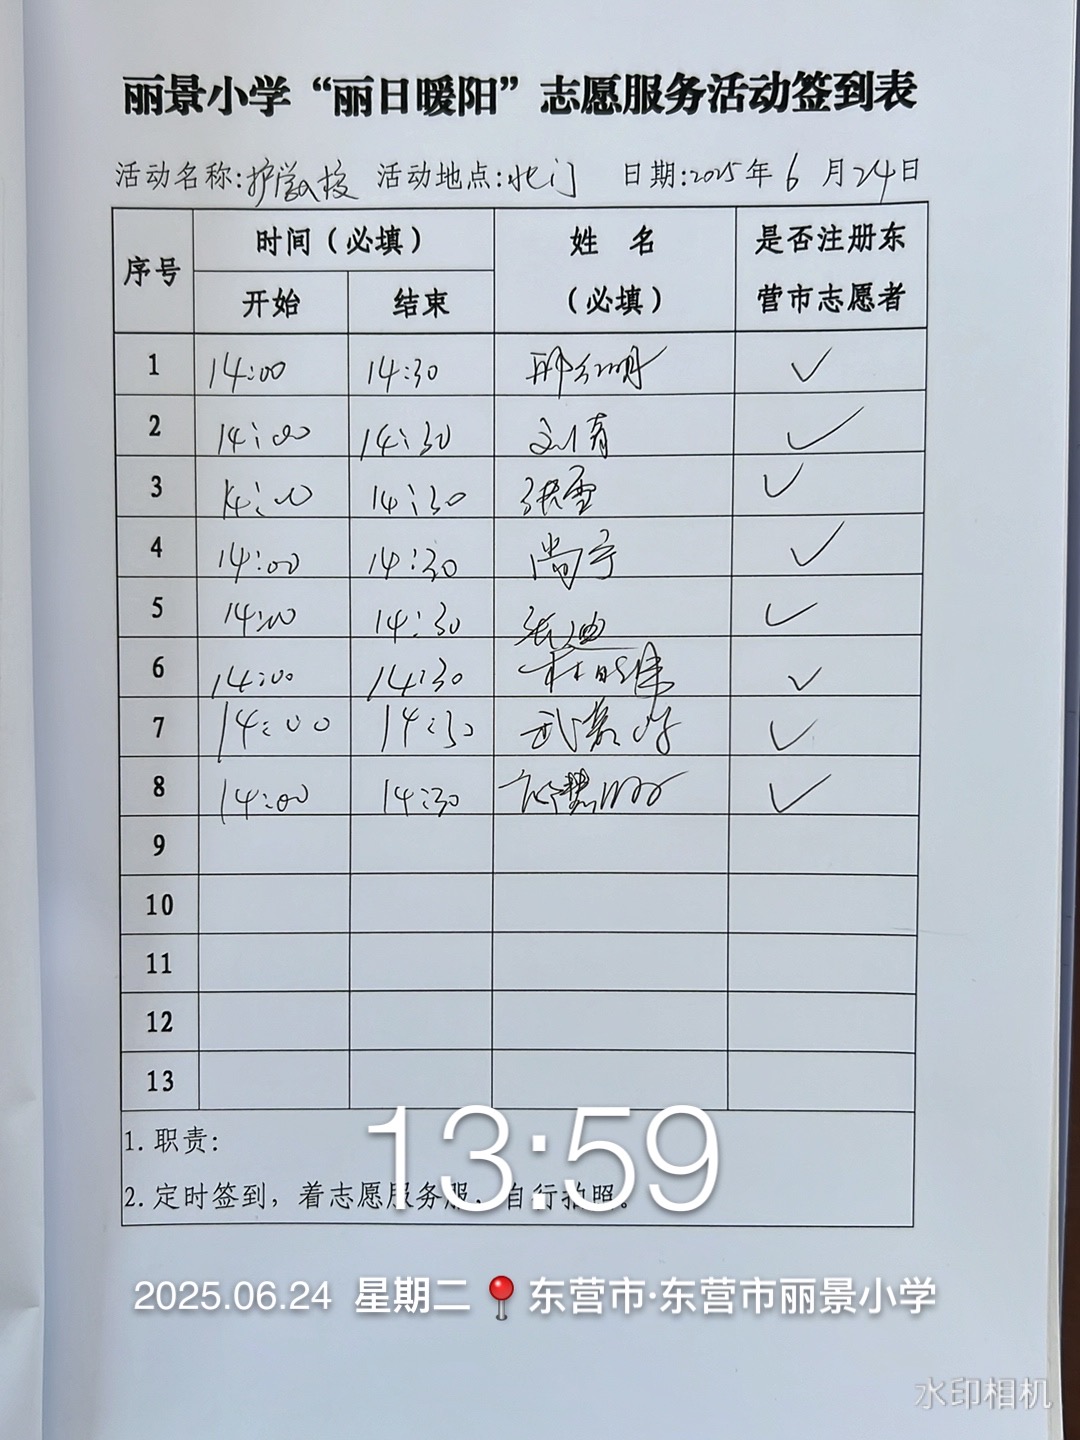 丽景小学“丽日暖阳”志愿服务活动签到表
活动名称:护学入校 活动地点:北门 日期:2025年6月24日
序号 时间(必填) 姓 名 (必填) 是否注册东营市志愿者
开始 结束
1 14:00 14:30 ✓
2 14:00 14:30 刘青 ✓
3 14:00 14:30 张雪 ✓
4 14:00 14:30 尚宁 ✓
5 14:00 14:30 张迪 ✓
6 14:00 14:30 ✓
7 14:00 14:30 ✓
8 14:00 14:30 ✓
9
10
11
12
13
1. 职责:
2. 定时签到，着志愿服务服，自行拍照。
13:59
2025.06.24 星期二 东营市·东营市丽景小学
水印相机